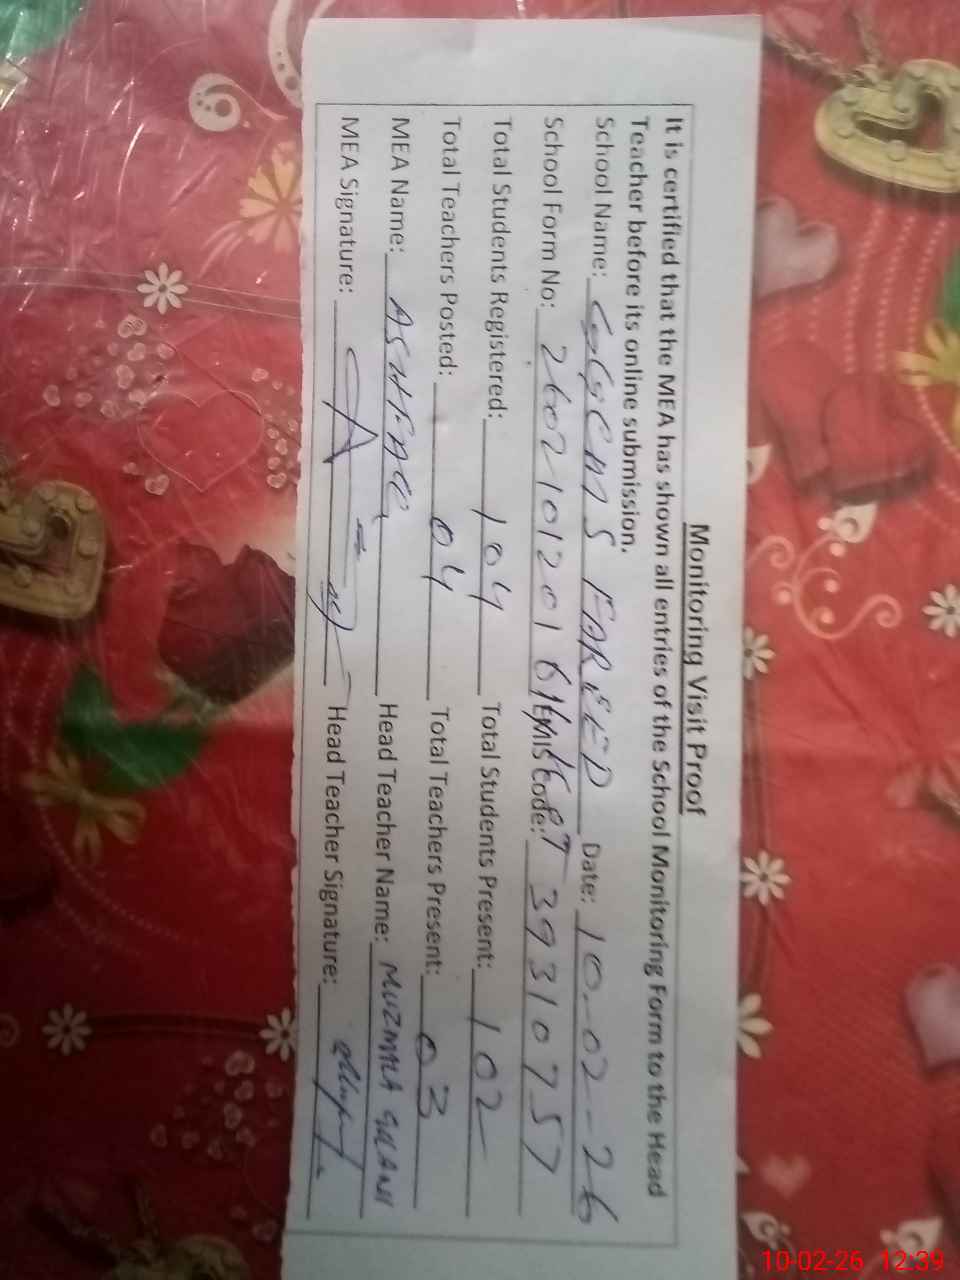 Monitoring Visit Proof
It is certified that the MEA has shown all entries of the School Monitoring Form to the Head
Teacher before its online submission.
School Name: GGCMS FAREED Date: 10-02-26
School Form No: 260210120161 EMIS Code: 39310757
Total Students Registered: 104 Total Students Present: 102
Total Teachers Posted: 04 Total Teachers Present: 03
MEA Name: ASHFAQ Head Teacher Name: MUZMALA
MEA Signature: Head Teacher Signature:
10-02-26 12:39